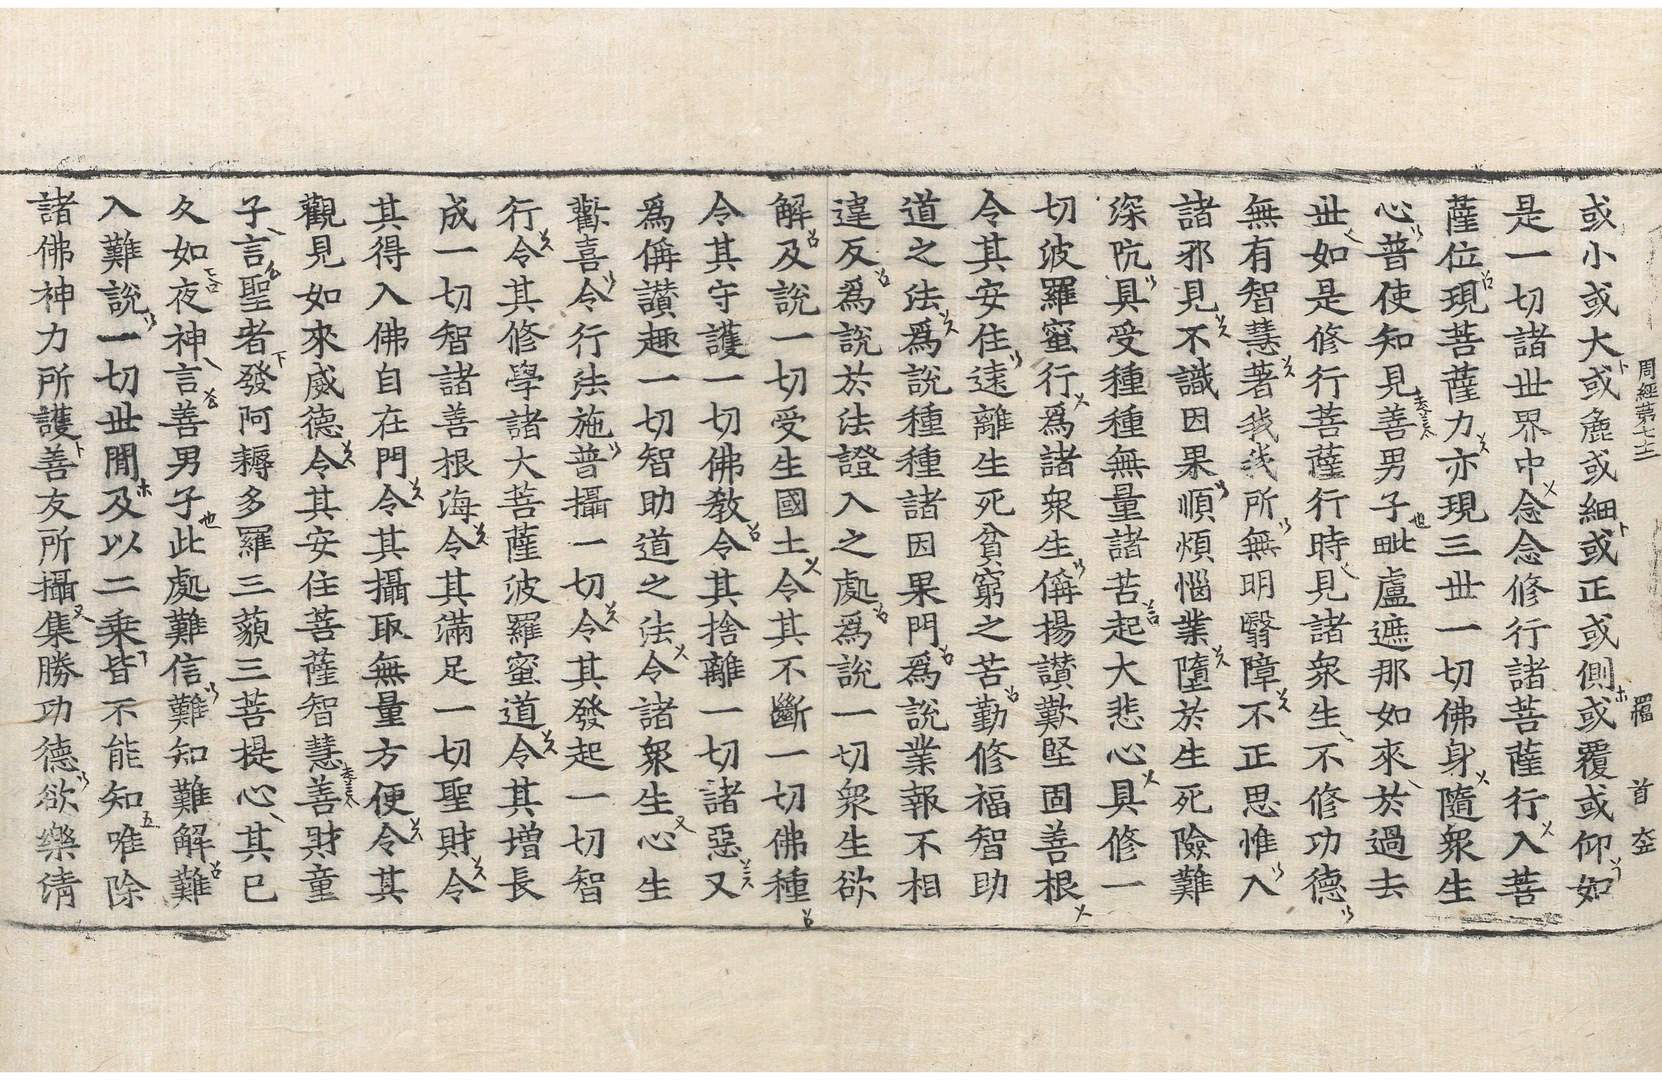 周經第七二
羅
首
或小或大或麁或細或正或側或覆或仰如
是一切諸世界中念念修行諸菩薩行入菩
薩位現菩薩力亦現三世一切佛身隨衆生
心普使知見善男子毗盧遮那如來於過去
世如是修行菩薩行時見諸衆生不修功德
無有智慧著我我所無明翳障不正思惟入
諸邪見不識因果順煩惱業墮於生死險難
深阬具受種種無量諸苦起大悲心具修一
切波羅蜜行爲諸衆生偁揚讃歎堅固善根
令其安住遠離生死貧窮之苦勤修福智助
道之法爲說種種諸因果門爲說業報不相
違反爲說於法證入之處爲說一切衆生欲
解及說一切受生國土令其不斷一切佛種
令其守護一切佛教令其捨離一切諸惡又
爲偁讃趣一切智助道之法令諸衆生心生
歡喜令行法施普攝一切令其發起一切智
行令其修學諸大菩薩波羅蜜道令其增長
成一切智諸善根海令其滿足一切聖財令
其得入佛自在門令其攝取無量方便令其
觀見如來威德令其安住菩薩智慧善財童
子言聖者發阿耨多羅三藐三菩提心其已
久如夜神言善男子此處難信難知難解難
入難說一切世間及以二乘皆不能知唯除
諸佛神力所護善友所攝集勝功德欲樂清